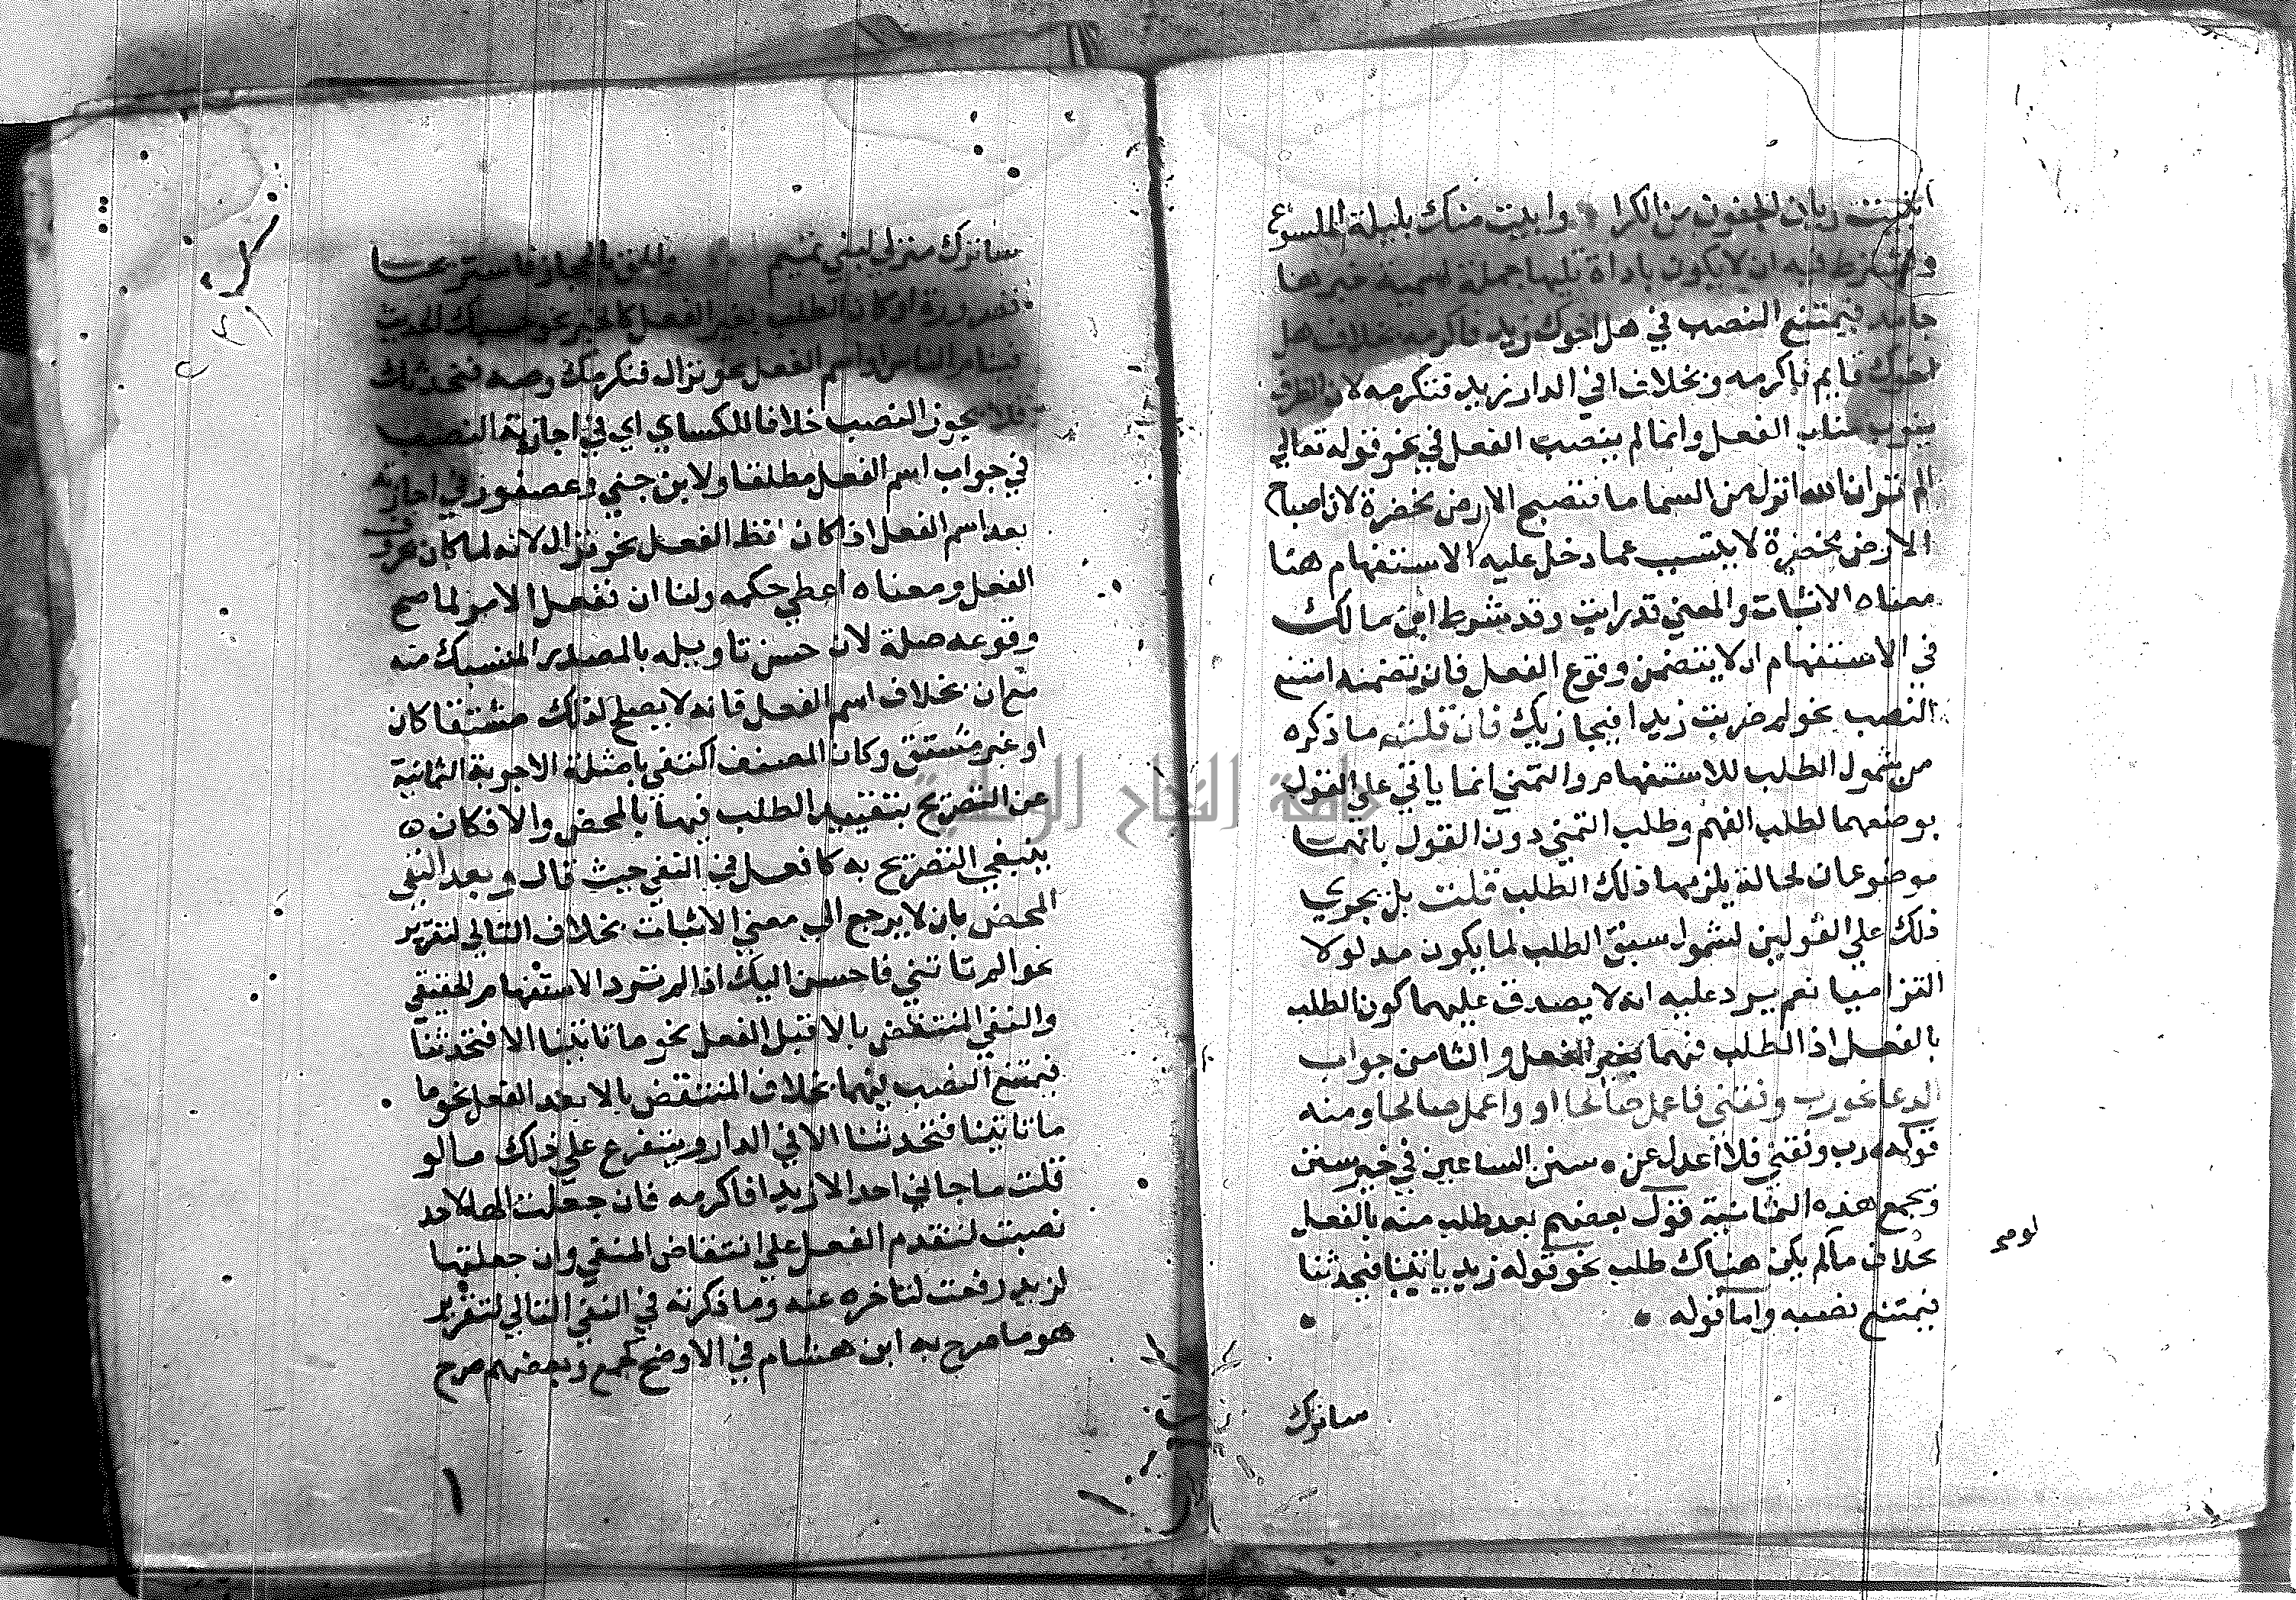 اتبيت ريان الجفون من الكرا وابيت منك بليلة الملسوع
واشترط فيه ان لا يكون باداة تليها جملة اسمية خبرها
جامد فيمتنع النصب في هل اخوك زيد فاكرمه بخلاف هل
اخوك قايم فاكرمه وبخلاف افي الدار زيد فتكرمه لان الظرف
ينوب مناب الفعل وانما لم ينصب الفعل في نحو قوله تعالي
الم تر ان الله انزل من السما ما فتصبح الارض مخضرة لان اصباح
الارض مخضرة لا يتسبب عما دخل عليه الاستفهام هنا
معناه الاثبات والمعني قد رايت وقد شرط ابن مالك
في الاستفهام ان لا يتضمن وقوع الفعل فان تضمنه امتنع
النصب نحو لم ضربت زيدا فيجازيك فان قلت ما ذكره
من شمول الطلب للاستفهام والتمني انما ياتي علي القول
بوضعهما لطلب الفهم وطلب التمني دون القول بانهما
موضوعان لحالة يلزمها ذلك الطلب قلت بل يجري
ذلك علي القولين لشمول سبق الطلب لما يكون مدلولا
التزاميا نعم يرد عليه انه لا يصدق عليهما كون الطلب
بالفعل اذ الطلب فيهما بغير الفعل والثامن جواب
الدعا نحو رب وفقني فاعمل صالحا او واعمل صالحا ومنه
قوله رب وفقني فلا اعدل عن ه سنن الساعين في خير سنن
ويجمع هذه الثمانية قول بعضهم بعد طلب منه بالفعل
بخلاف مالم يكن هناك طلب نحو قوله زيد ياتينا فيحدثنا
فيمتنع نصبه واما قوله
ساترك
ساترك منزلي لبني تميم والحق بالحجاز فاستريحا
فضرورة او كان الطلب بغير الفعل كالخبر نحو حسبك الحديث
فينام الناس او اسم الفعل نحو نزال فنكرمك وصه فنحدثك
فلا يجوز النصب خلافا للكساي اي في اجازته النصب
في جواب اسم الفعل مطلقا ولابن جني وعصفور في اجازته
بعد اسم الفعل اذا كان لفظ الفعل نحو نزال لانه لما كان حروف
الفعل ومعناه اعطي حكمه ولنا ان نفعل الامر لما صح
وقوعه صلة لان حسن تاويله بالمصدر المنسبك منه
مع ان بخلاف اسم الفعل فانه لا يصلح لذلك مشتقا كان
او غير مشتق وكان المصنف اكتفي بامثلة الاجوبة الثمانية
عن التصريح بتقييد الطلب فيها بالمحض والا فكان ه
ينبغي التصريح به كما فعل في النفي حيث قال وبعد النفي
المحض بان لا يرجع الي معني الاثبات بخلاف التالي لتقرير
نحو الم تاتني فاحسن اليك اذا لم ترد الاستفهام الحقيقي
والنفي المنتقض بالا قبل الفعل نحو ما تاتينا الا فتحدثنا
فيمتنع النصب فيهما بخلاف المنتقض بالا بعد الفعل نحو ما
ما تاتينا فتحدثنا الا في الدار ويتفرع علي ذلك مالو
قلت ما جاني احد الا زيد فاكرمه فان جعلت الها لاحد
نصبت لتقدم الفعل علي انتقاض المنفي وان جعلتها
لزيد رفعت لتاخره عنه وما ذكرته في النفي التالي لتقرير
هو ما صرح به ابن هشام في الاوضح كجمع وبعضهم صرح
جامعة النجاح الوطنية